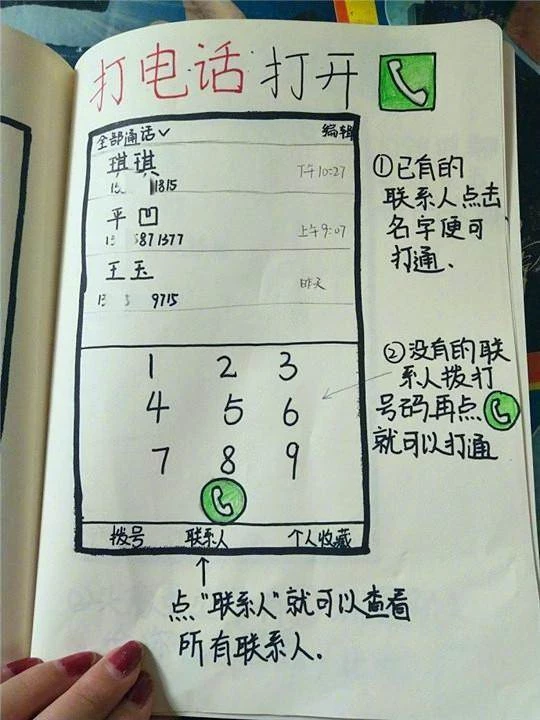 打电话 打开
全部通话 编辑
琪琪 下午10:27
1815
平凹 上午9:07
5871377
王玉 昨天
9715
1 2 3
4 5 6
7 8 9
拨号 联系人 个人收藏
①已有的
联系人点击
名字便可
打通.
②没有的联
系人拨打
号码再点
就可以打通
点"联系人"就可以查看
所有联系人.